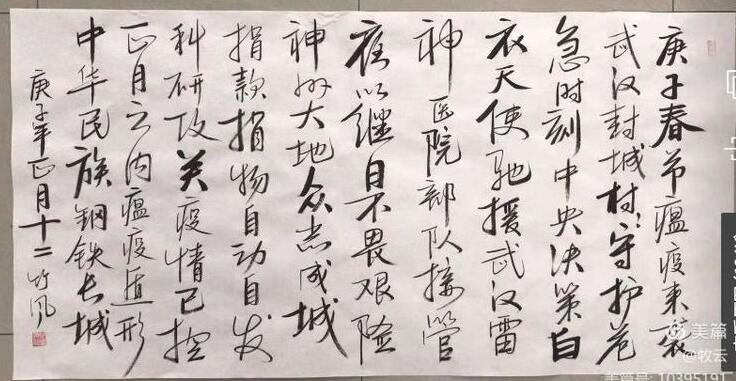 庚子春节瘟疫来袭
武汉封城村:守护危
急时刻中央决策白
衣天使驰援武汉雷
神医院部队接管
夜以继日不畏艰险
神州大地众志成城
捐款捐物自动自发
科研攻关疫情已控
正月之内瘟疫遁形
中华民族钢铁长城
庚子年正月十二 竹风
美篇
@牧云
美篇号 10395191